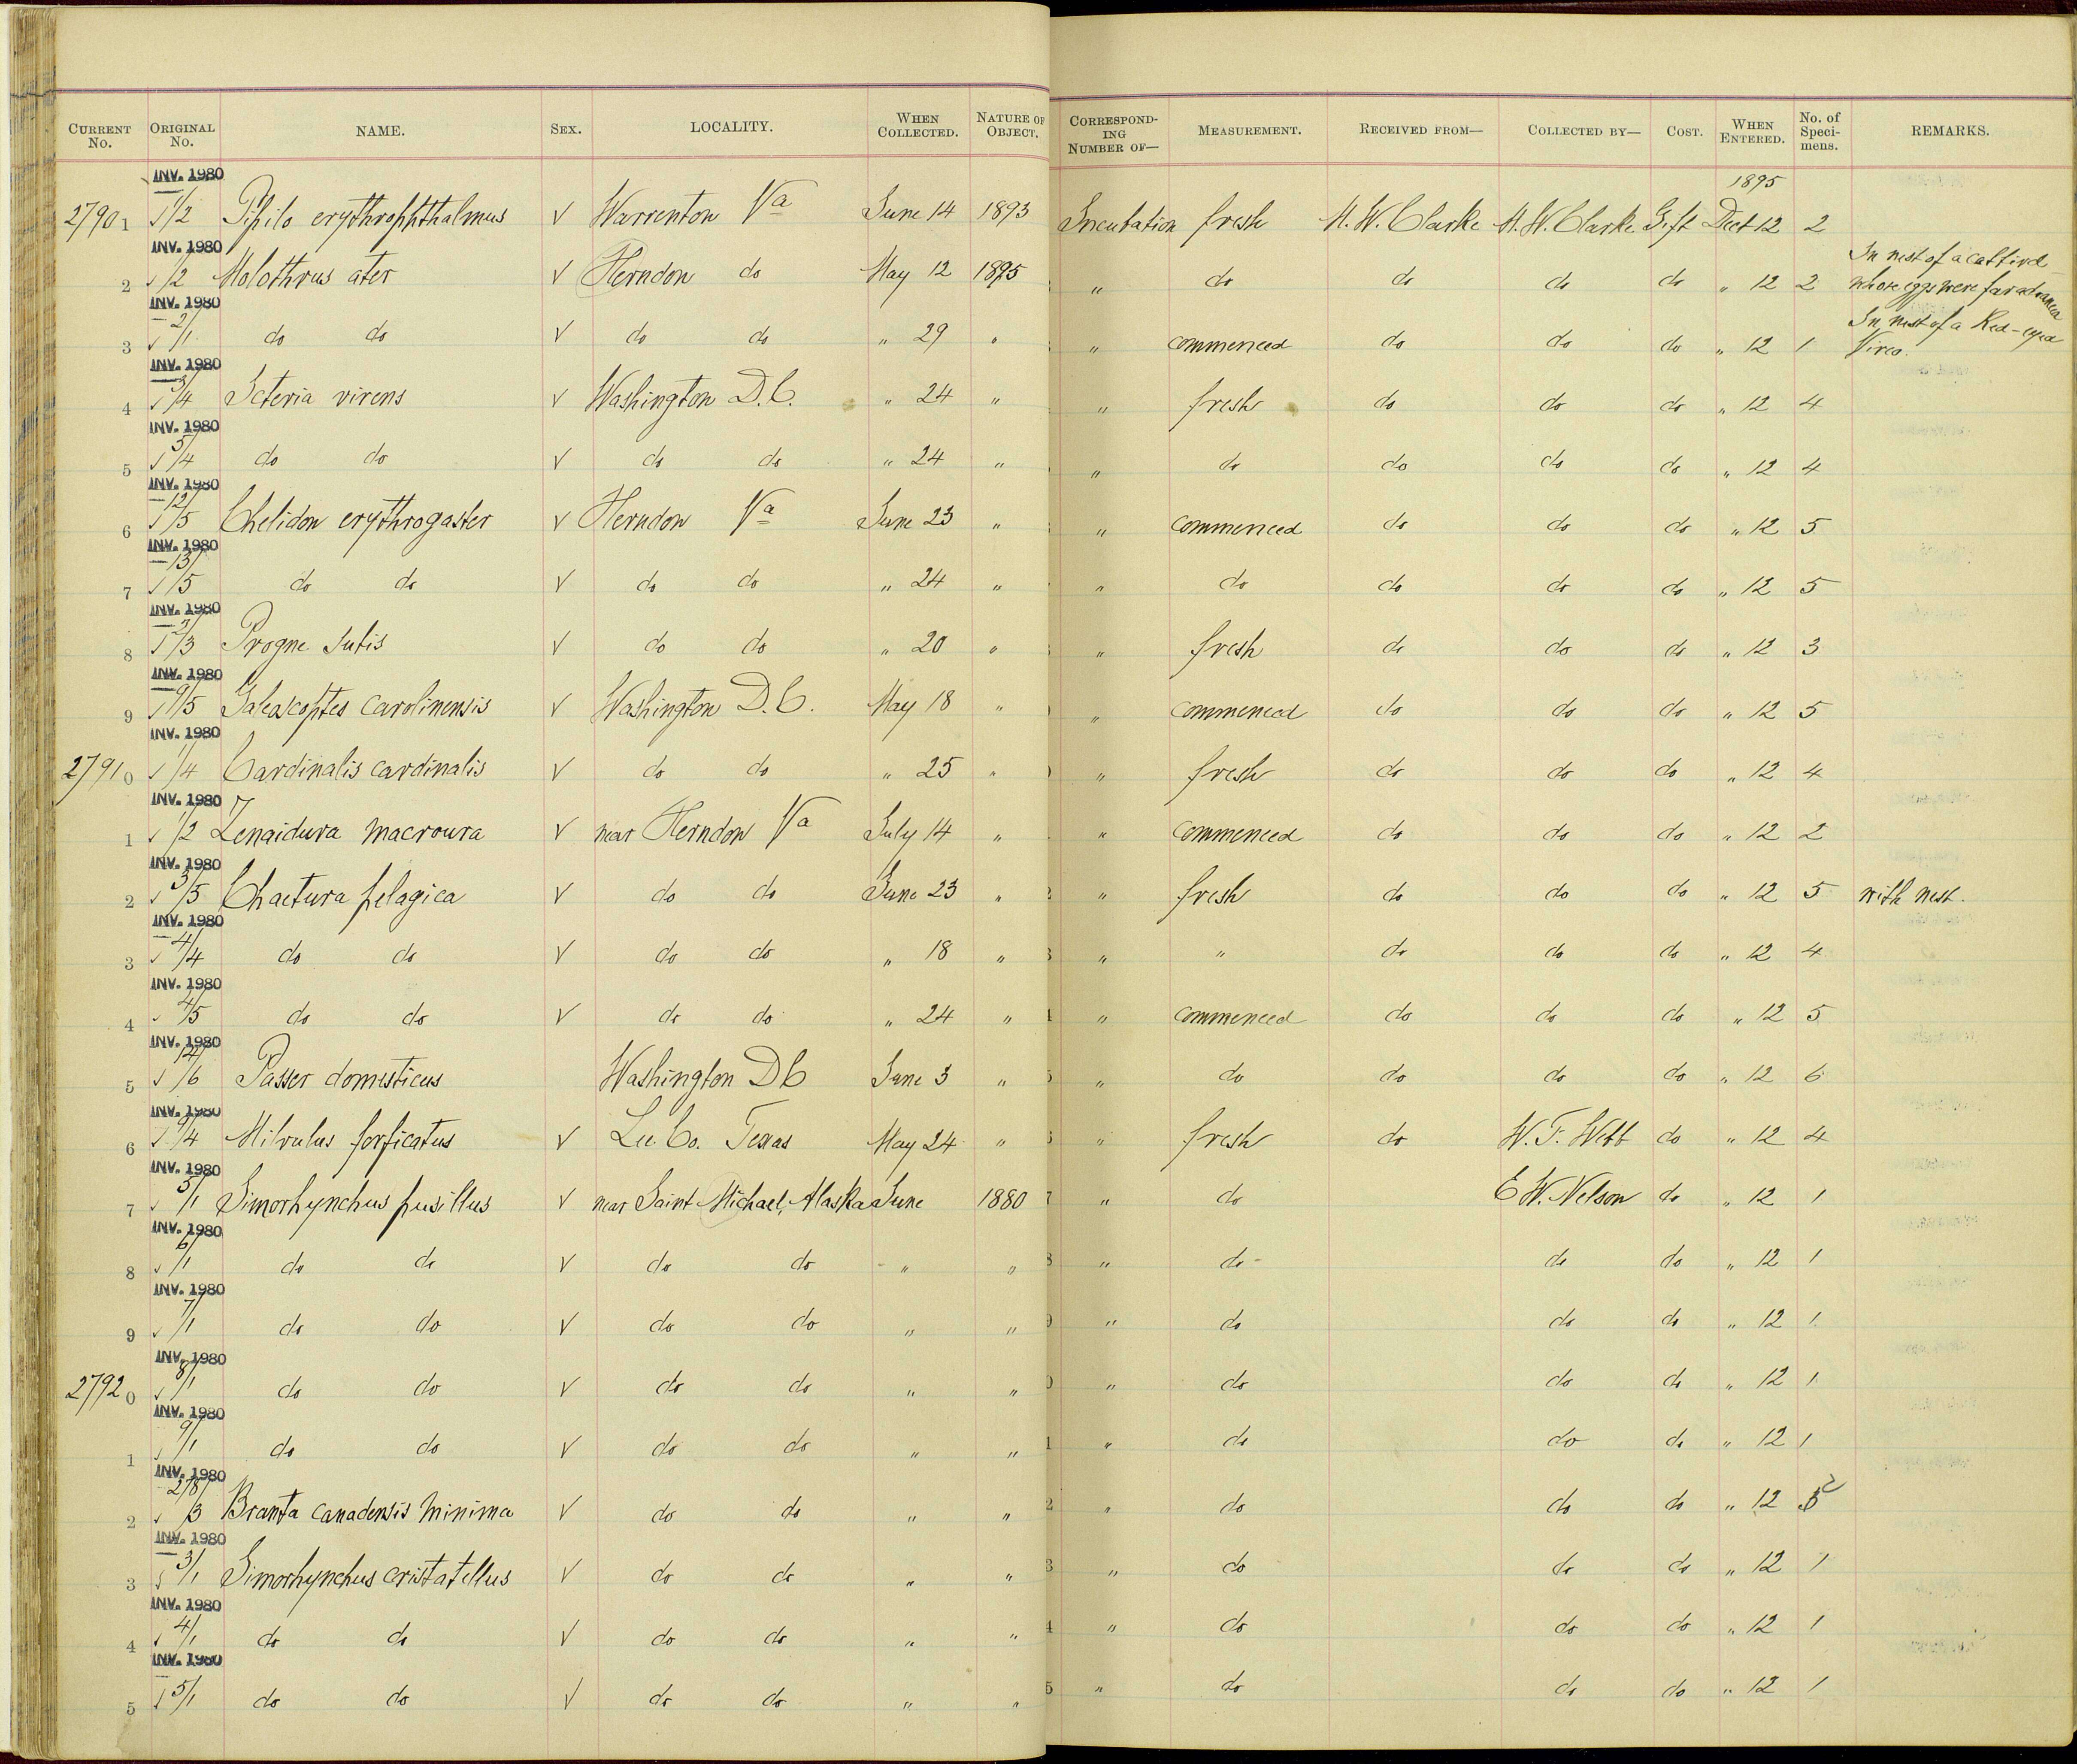 CURRENT No. ORIGINAL No. NAME. SEX. LOCALITY. WHEN COLLECTED. NATURE OF OBJECT. CORRESPONDING NUMBER OF— MEASUREMENT. RECEIVED FROM— COLLECTED BY— COST. WHEN ENTERED. No. of Specimens. REMARKS.
INV. 1980 1895
27901 1/2 Pipilo erythrophthalmus √ Warrenton Va June 14 1893 Incubation fresh H. W. Clarke H. W. Clarke Gift Dect 12 2
INV. 1980
2 1/2 Molothrus ater √ Herndon do May 12 1895 " do do do do " 12 2 In nest of a catbird whose eggs were far advanced
INV. 1980
3 2/1 do do √ do do " 29 " " commenced do do do " 12 1 In nest of a Red-eyed Vireo.
INV. 1980
4 3/4 Icteria virens √ Washington D.C. " 24 " " fresh do do do " 12 4
INV. 1980
5 5/4 do do √ do do " 24 " " do do do do " 12 4
INV. 1980
6 12/5 Chelidon erythrogaster √ Herndon Va June 23 " " commenced do do do " 12 5
INV. 1980
7 13/5 do do √ do do " 24 " " do do do do " 12 5
INV. 1980
8 2/3 Progne subis √ do do " 20 " " fresh do do do " 12 3
INV. 1980
9 9/5 Galeoscoptes carolinensis √ Washington D.C. May 18 " " commenced do do do " 12 5
INV. 1980
27910 1/4 Cardinalis cardinalis √ do do " 25 " " fresh do do do " 12 4
INV. 1980
1 1/2 Zenaidura macroura √ near Herndon Va July 14 " " commenced do do do " 12 2
INV. 1980
2 3/5 Chaetura pelagica √ do do June 23 " " fresh do do do " 12 5 with nest.
INV. 1980
3 4/4 do do √ do do " 18 " " " do do do " 12 4
INV. 1980
4 4/5 do do √ do do " 24 " " commenced do do do " 12 5
INV. 1980
5 14/6 Passer domesticus Washington DC June 3 " " do do do do " 12 6
INV. 1980
6 9/4 Milvulus forficatus √ Lee Co. Texas May 24 " " fresh do W. F. Webb do " 12 4
INV. 1980
7 5/1 Simorhynchus pusillus √ near Saint Michael, Alaska June 1880 " do E W. Nelson do " 12 1
INV. 1980
8 6/1 do do √ do do " " " do do do " 12 1
INV. 1980
9 7/1 do do √ do do " " " do do do " 12 1
INV. 1980
27920 8/1 do do √ do do " " " do do do " 12 1
INV. 1980
1 9/1 do do √ do do " " " do do do " 12 1
INV. 1980
2 2/8/3 Branta canadensis minima √ do do " " " do do do " 12
INV. 1980
3 3/1 Simorhynchus cristatellus √ do do " " " do do do " 12 1
INV. 1980
4 4/1 do do √ do do " " " do do do " 12 1
INV. 1980
5 5/1 do do √ do do " " " do do do " 12 1